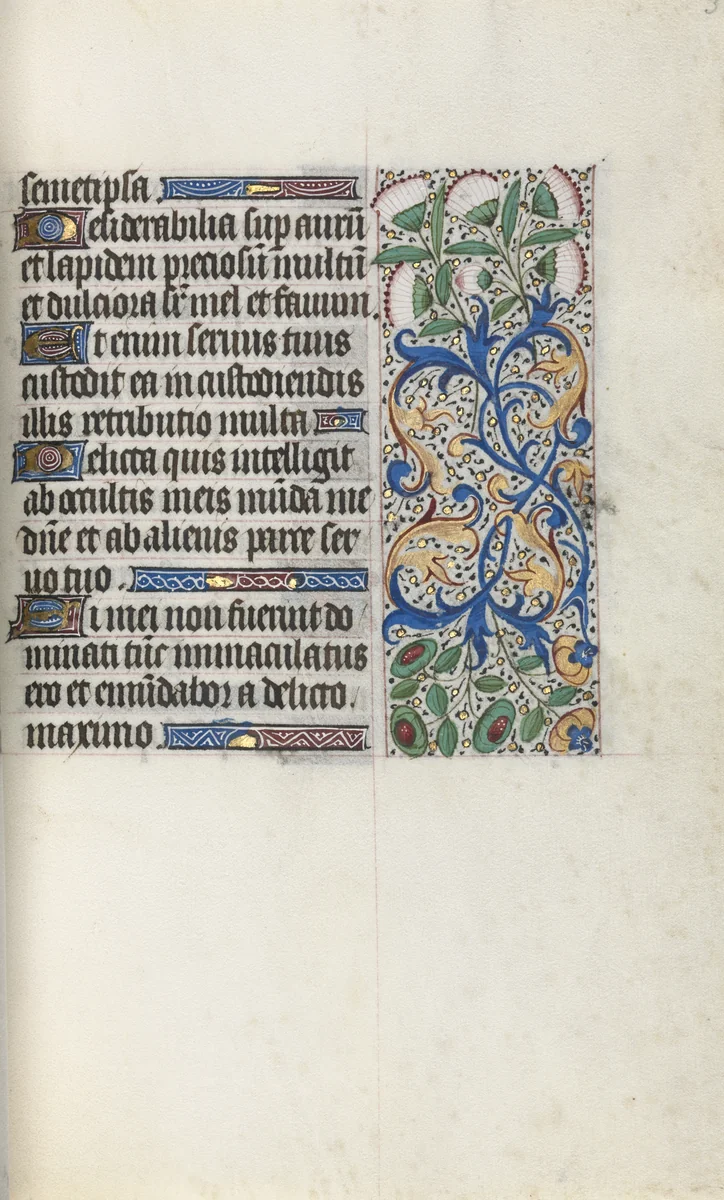 semetipsa.
Desiderabilia sup aurū
et lapidem preciosū multū
et dulciora sr̄ mel et fauum.
Et enim seruus tuus
custodit ea in custodiendis
illis retributio multa
Delicta quis intelligit
ab occultis meis mūda me
dn̄e et ab alienis parce ser
uo tuo.
Si mei non fuerint do
minati tūc immaculatus
ero et emūdabor a delicto.
maximo.